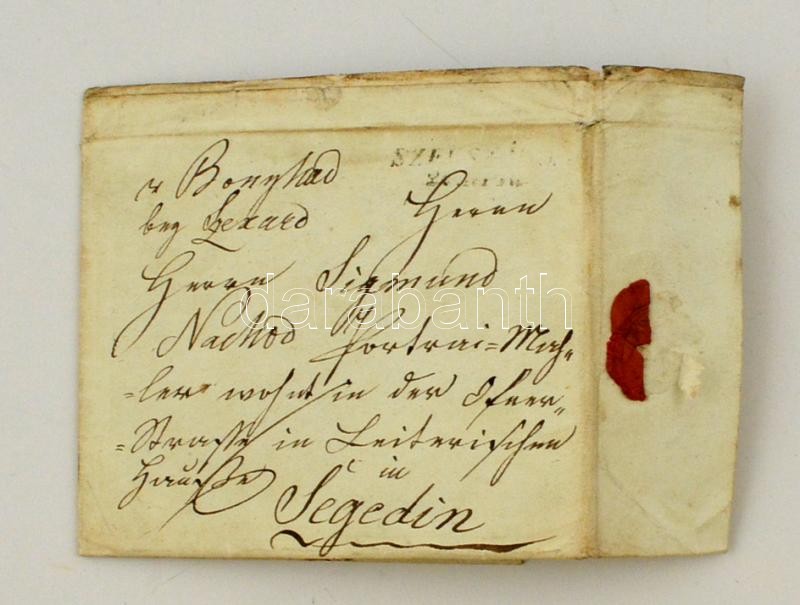 v Bonyhád
beg Sexard Herrn
Herrn Sigmund
Nachod Portrai=Mah=
=ler wohnt in der Ofner=
=Strasse in Leiterischen
Hausse in
Segedin
darabanth